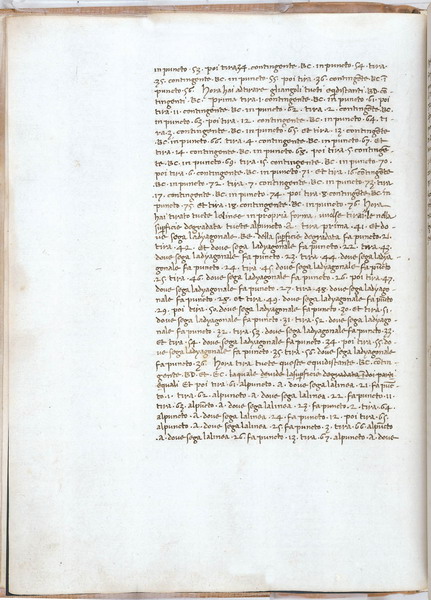 in puncto . 53 . poi tira 34 . contingente . bc . in puncto . 54 . tira .
35 . contingente . bc . in puncto . 55 poi tira . 36 . contingēte . bc .
puncto . 56 . Hora hai altirare gliangoli tucti equidistanti . BD .
tingenti . bc . prima tira . 1 . contingente . bc . in puncto . 61 . poi
tira . 11 . contingente . bc . in puncto . 62 . tira . 2 . contingēte . bc .
in puncto . 63 . poi tira . 12 . contingente . bc . in puncto . 64 . ti
ra . 3 . contingente . bc . in puncto . 65 . et tira . 13 . contingēte
. bc . in puncto . 66 . tira . 4 . contingente . bc . in puncto . 67 . et
tira . 14 . contingente . bc . in puncto . 68 . poi tira . 5 . continge
te . bc . in puncto . 69 . tira . 15 . contingente . bc . in puncto . 70 .
poi tira . 6 . contingente . bc . in puncto . 71 . et tira . 16 . contingēte
. bc . in puncto . 72 . tira . 7 . contingente . bc . in puncto . 73 . tira
17 . contingente . bc . in puncto . 74 . poi tira . 8 . contingēte . bc .
puncto . 75 . et tira . 18 . contingente . bc . in puncto . 76 . Hora
hai tirato tucte le linee in propria forma . tirarle nella
superficie degradata tucte alpuncto . A . tira . prima . 41 . et do
ve sega ladyagonale . BE . della superficie degradata fa puncto . 21 .
tira . 42 . et dove sega ladyagonale fa puncto . 22 . tira . 43 .
dove sega ladyagonale fa puncto . 23 . tira . 44 . dove sega ladya
gonale fa puncto . 24 . tira . 45 . dove sega ladyagonale fa puncto
25 . tira . 46 . dove sega ladyagonale fa puncto . 26 . poi tira . 47 .
dove sega ladyagonale fa puncto . 27 . tira . 48 . dove sega ladyago
nale fa puncto . 28 . et tira . 49 . dove sega ladyagonale fa puncto
29 . poi tira . 50 . dove sega ladyagonale fa puncto . 30 . et tira . 51 .
dove sega ladyagonale fa puncto . 31 . tira . 52 . dove sega ladyago
nale fa puncto . 32 . tira . 53 . dove sega ladyagonale fa puncto . 33 .
et tira . 54 . dove sega ladyagonale fa puncto . 34 . poi tira . 55 . do
ve sega ladyagonale fa puncto . 35 . tira . 56 . dove sega ladyagonale
fa puncto . 36 . Hora tira tucte queste equidistante . BC . contin
gente . BD . et . EC . laquale devide lasuperficie degradata parti
equali . Et poi tira . 61 . alpuncto . A . dove sega lalinea . 21 . fa punc
to . 1 . tira . 62 . alpuncto . A . dove sega lalinea . 22 . fa puncto . 11 .
tira . 63 . alpuncto . A . dove sega lalinea . 23 . fa puncto . 2 . tira . 64 .
alpuncto . A . dove sega lalinea . 24 . fa puncto . 12 . poi tira . 65 .
alpuncto . A . dove sega lalinea . 25 . fa puncto . 3 . tira . 66 . alpuncto
. A . dove sega lalinea . 26 . fa puncto . 13 . tira . 67 . alpuncto . A . dove